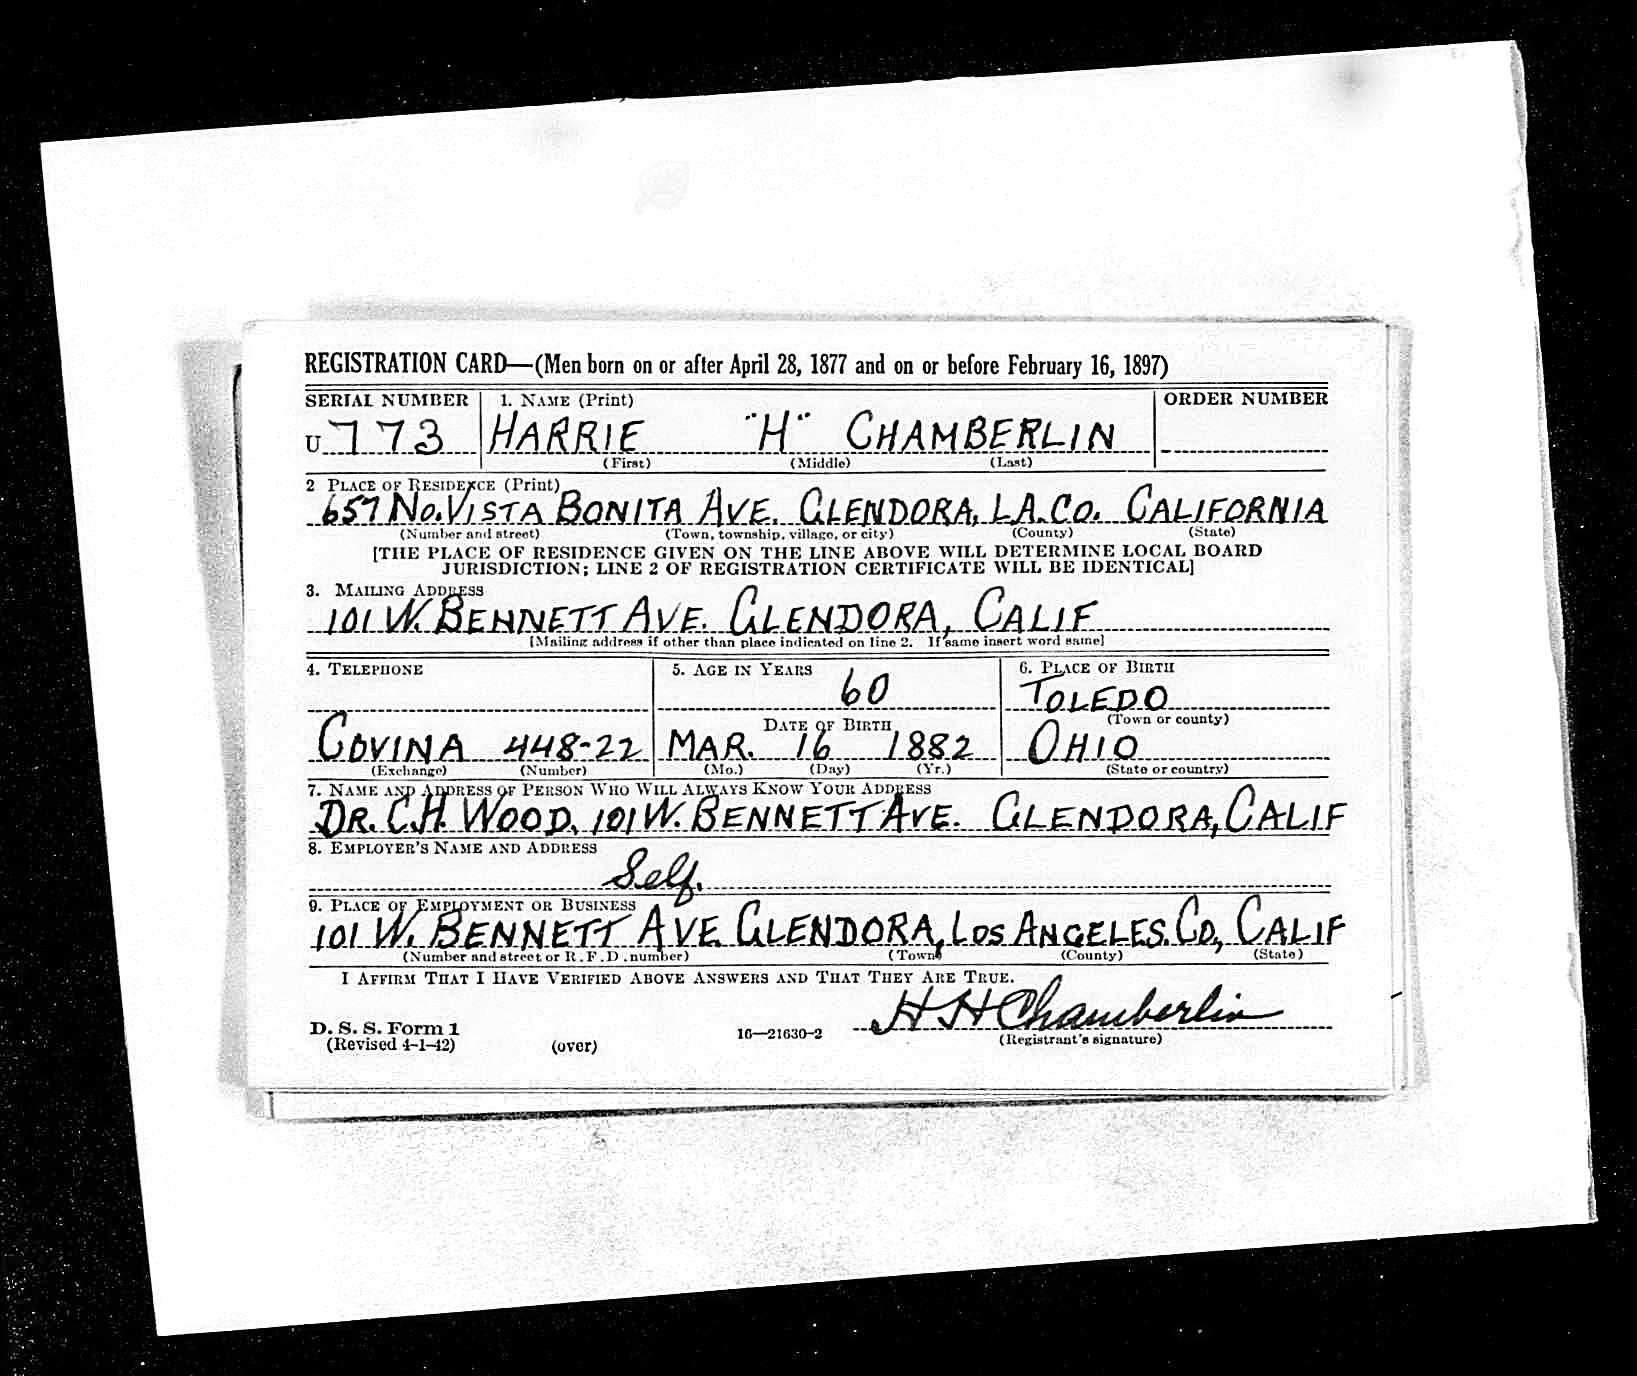 REGISTRATION CARD—(Men born on or after April 28, 1877 and on or before February 16, 1897)
SERIAL NUMBER 1. NAME (Print) ORDER NUMBER
U 773 HARRIE "H" CHAMBERLIN
(First) (Middle) (Last)
2 PLACE OF RESIDENCE (Print)
657 No. VISTA BONITA AVE. GLENDORA, L.A. CO. CALIFORNIA
(Number and street) (Town, township, village, or city) (County) (State)
[THE PLACE OF RESIDENCE GIVEN ON THE LINE ABOVE WILL DETERMINE LOCAL BOARD
JURISDICTION; LINE 2 OF REGISTRATION CERTIFICATE WILL BE IDENTICAL]
3. MAILING ADDRESS
101 W. BENNETT AVE. GLENDORA, CALIF
[Mailing address if other than place indicated on line 2. If same insert word same]
4. TELEPHONE 5. AGE IN YEARS 6. PLACE OF BIRTH
60 TOLEDO
DATE OF BIRTH (Town or county)
COVINA 448-22 MAR. 16 1882 OHIO
(Exchange) (Number) (Mo.) (Day) (Yr.) (State or country)
7. NAME AND ADDRESS OF PERSON WHO WILL ALWAYS KNOW YOUR ADDRESS
DR. C.H. WOOD, 101 W. BENNETT AVE. GLENDORA, CALIF
8. EMPLOYER'S NAME AND ADDRESS
Self.
9. PLACE OF EMPLOYMENT OR BUSINESS
101 W. BENNETT AVE GLENDORA, LOS ANGELES. CO, CALIF
(Number and street or R.F.D. number) (Town) (County) (State)
I AFFIRM THAT I HAVE VERIFIED ABOVE ANSWERS AND THAT THEY ARE TRUE.
H H Chamberlin
D. S. S. Form 1 16—21630-2 (Registrant's signature)
(Revised 4-1-42) (over)